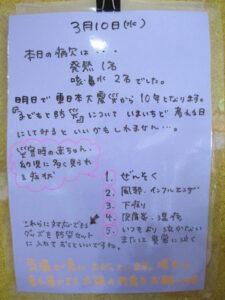 3月10日(水)
本日の病欠は・・・
発熱 1名
咳・鼻水 2名でした。
明日で東日本大震災から10年となります。
『子どもと防災』について いまいちど 考える日
にしてみると いいかもしれません…。
災害時の赤ちゃん・
幼児に多く見られ
る症状
1. ぜんそく
2. 風邪、インフルエンザ
3. 下痢
4. 皮膚炎・湿疹
5. いつもより泣かない
または異常に泣く
これらに対応できる
グッズを防災セット
に入れておくといいですね。